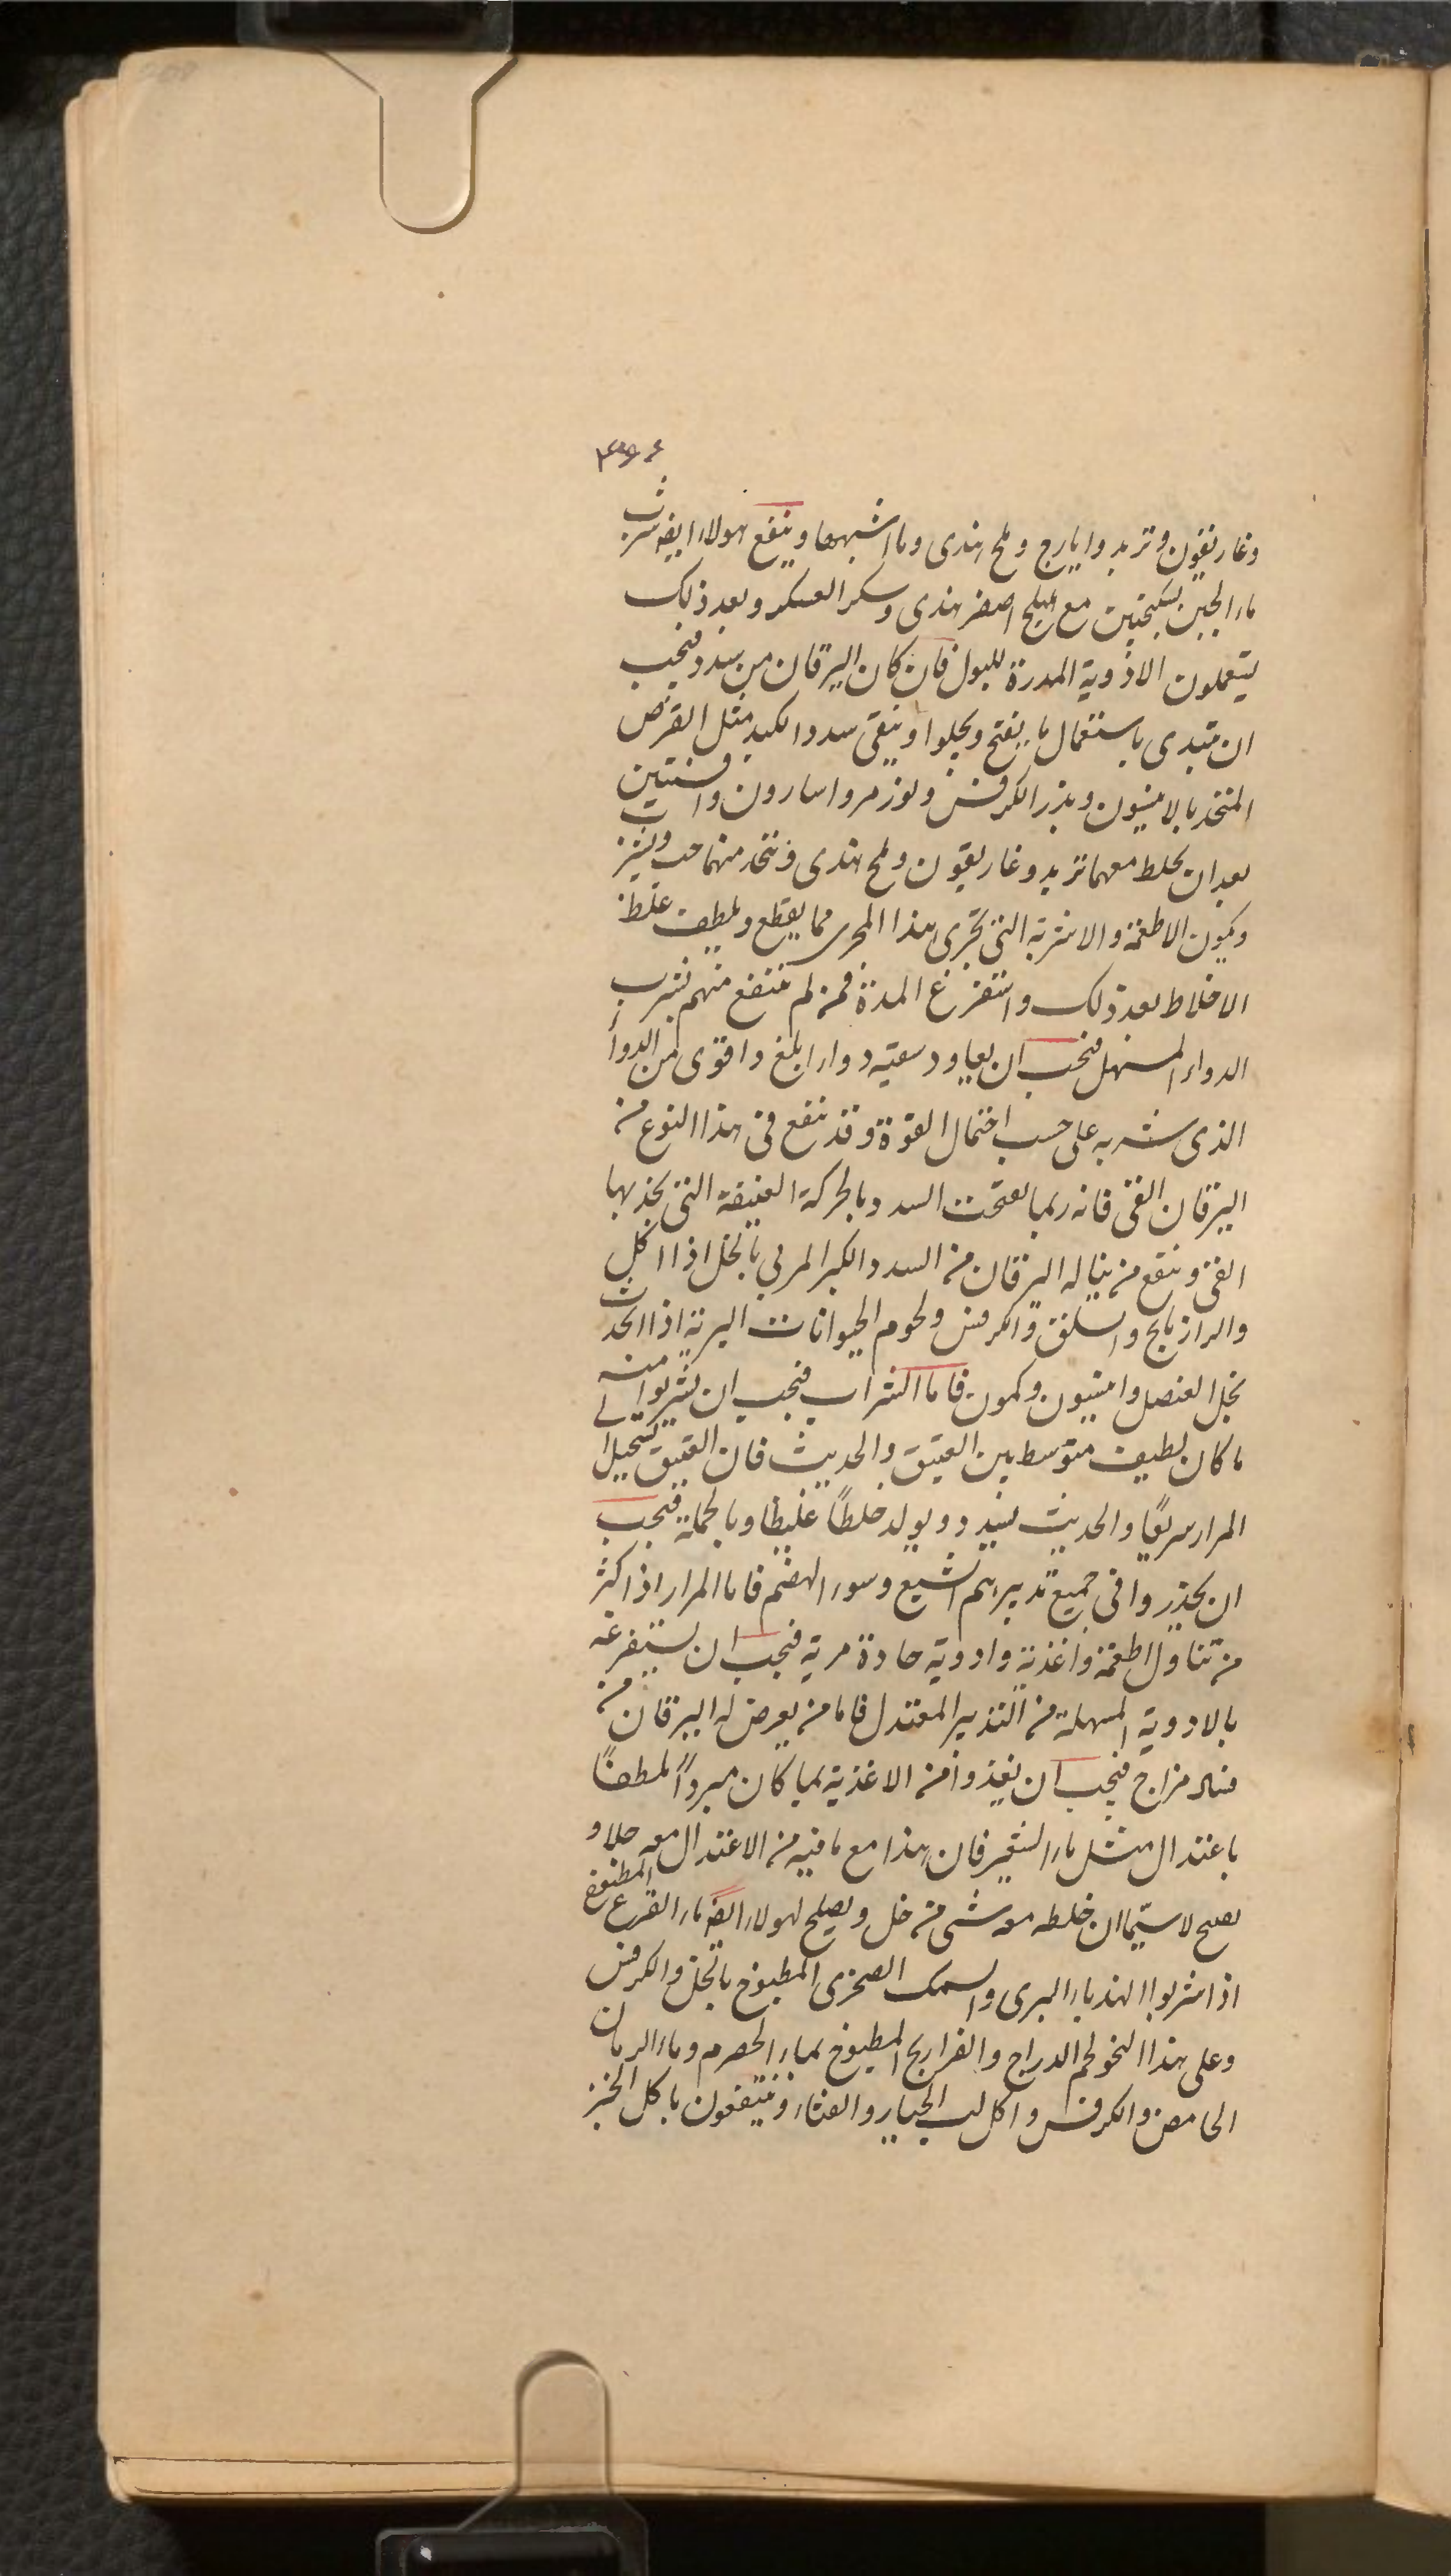 وغاريقون وتربد وايارج وملح هندى وما اشبهها وينفع هولاء ايضه شرب
ماء الجبن بسكنجبين مع اهليلج اصفر هندى وسكر العسكر وبعد ذلك
يستعملون الادوية المدرة للبول فان كان اليرقان من سدد فيجب
ان تبتدى باستعمال ما يفتح ويجلوا وينقى سدد الكبد مثل القرص
المتخذ بالانيسون وبذر الكرفس ولوز مر واسارون وافسنتين
بعد ان يخلط معهما تربد وغاريقون وملح هندى ويتخذ منهما حب ويشرب
ويكون الاطعمة والاشربة التى تجرى هذا المجرى مما يقطع ويلطف غلظ
الاخلاط بعد ذلك واستفرغ المدة فمن لم ينتفع منهم بشرب
الدواء المسهل فيجب ان يعاود سقيه دواء ابلغ واقوى من الدواء
الذى شربه على حسب احتمال القوة وقد ينفع فى هذا النوع من
اليرقان القى فانه ربما يفتحت السدد بالحركة العنيفة التى يجذبها
القى وينفع من يناله اليرقان من السدد الكبر المربي بالخل اذا اكل
والرازيانج والسلق والكرفس ولحوم الحيوانات البرية اذا اتخذت
بخل العنصل وانيسون وكمون فاما الشراب فيجب ان يشربوا منه
ما كان لطيف متوسط بين العتيق والحديث فان العتيق يستحيل الى
المرار سريعًا والحديث يسدد ويولد خلطًا غليظا وبالجملة فيجب
ان يحذروا فى جميع تدبيرهم الشبع وسوء الهضم فاما المرار اذا كثر
من تناول اطعمة واغذية وادوية حادة مرية فيجب ان يستفرغه
بالادوية المسهلة من التدبير المعتدل فاما من يعرض له اليرقان من
فساد مزاج فيجب ان يغذوا من الاغذية بما كان مبردًا ملطفًا
باعتدال مثل ماء الشعير فان هذا مع ما فيه من الاعتدال معه جلاء و
يصلح لا سيّما ان خلطه معه شى من خل ويصلح لهولاء ايضه ماء القرع المطبوخ
اذا شربوا الهندباء البرى والسمك الصخرى المطبوخ بالخل والكرفس
وعلى هذا النحو لحم الدراج والفراريج المطبوخ بماء الحصرم وماء الرمان
الحامض والكرفس واكل لب الخيار والقثاء وينتفعون باكل الخبز